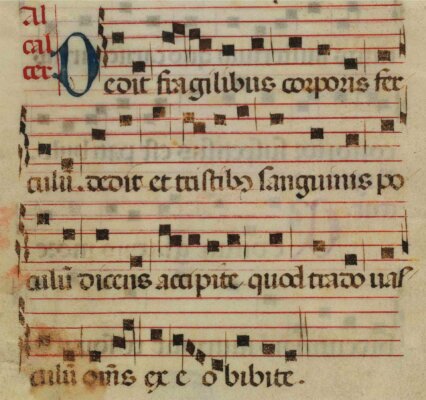 al
cal
Dedit fragilibus corporis fer
culū. dedit et tristibꝫ sanguinis po
culū dicens accipite quod trado uas
culū om̄s ex e o bibite.